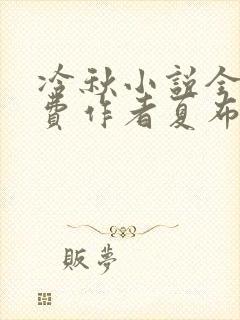 冷秋小説全
費作者夏布
販夢